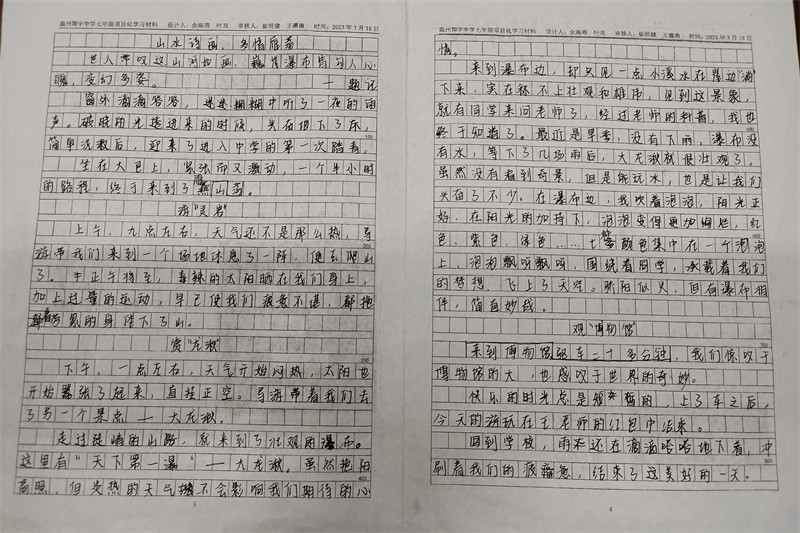 温州翔宇中学七年级项目化学习材料 设计人：余海燕 叶双 审核人：崔明健 王露南 时间：2023年3月18日
山水诗画，多情雁荡
世人常叹这山河如画，
瞩，变幻多姿。 —题记
窗外滴滴答答，迷迷糊糊中听了一夜的雨
声。破晓的光透进来的时候，兴奋地下了床，
简单洗漱后，迎来了进入中学的第一次踏春。
坐在大巴上，紧张而又激动，一个半小时
的路程，终于来到了雁山荡。
游“灵岩”
上午，九点左右，天气还不是那么热，导
游带我们来到一个场地休息了一阵，便去爬山
了。正午将至，毒辣的太阳晒在我们身上，
加上过量的运动，早已使我们疲惫不堪，都拖
着劳累的身 下了山。
赏“龙湫”
下午，一点左右，天气开始闷热，太阳也
开始嚣张了起来，直挂正空。导游带着我们去
了另一个景点——大龙湫。
走过陡峭的山路，就来到了壮观的瀑布。
这里有“天下第一瀑”——大龙湫。虽然艳阳
高照，但炎热的天气 不会影响我们期待的心
3
温州翔宇中学七年级项目化学习材料 设计人：余海燕 叶双 审核人：崔明健 王露南 时间：2023年3月18日
情。
来到瀑布边，却只见一点小溪水在崖边“滴”
下来，实在称不上壮观和雄伟，见到这景象，
就有同学来问老师了，经过老师的科普，我也
终于知道了。最近是旱季，没有下雨，瀑布没
有水，等下了几场雨后，大龙湫就很壮观了。
虽然没有看到奇景，但是能玩水，也是让我们
兴奋了不少。在瀑布边，我吹着泡泡，阳光正
好，在阳光的加持下，泡泡变得更加绚烂，红
色、紫色、绿色……七 颜色集中在一个泡泡
上，泡泡飘呀飘呀，围绕着同学，承载着我们
的梦想，飞上了天空。骄阳似火，但有瀑布相
伴，简直妙哉。
观“博物馆”
来到博物馆驱车二十多分钟，我们惊叹于
博物馆的大，也感叹于世界的奇妙。
快乐的时光总是短暂的，上了车之后，
今天的游玩在王老师的红包中结束。
回到学校，雨 还在滴滴嗒嗒地下着，冲
刷着我们的疲惫，结束了这美好的一天。
4